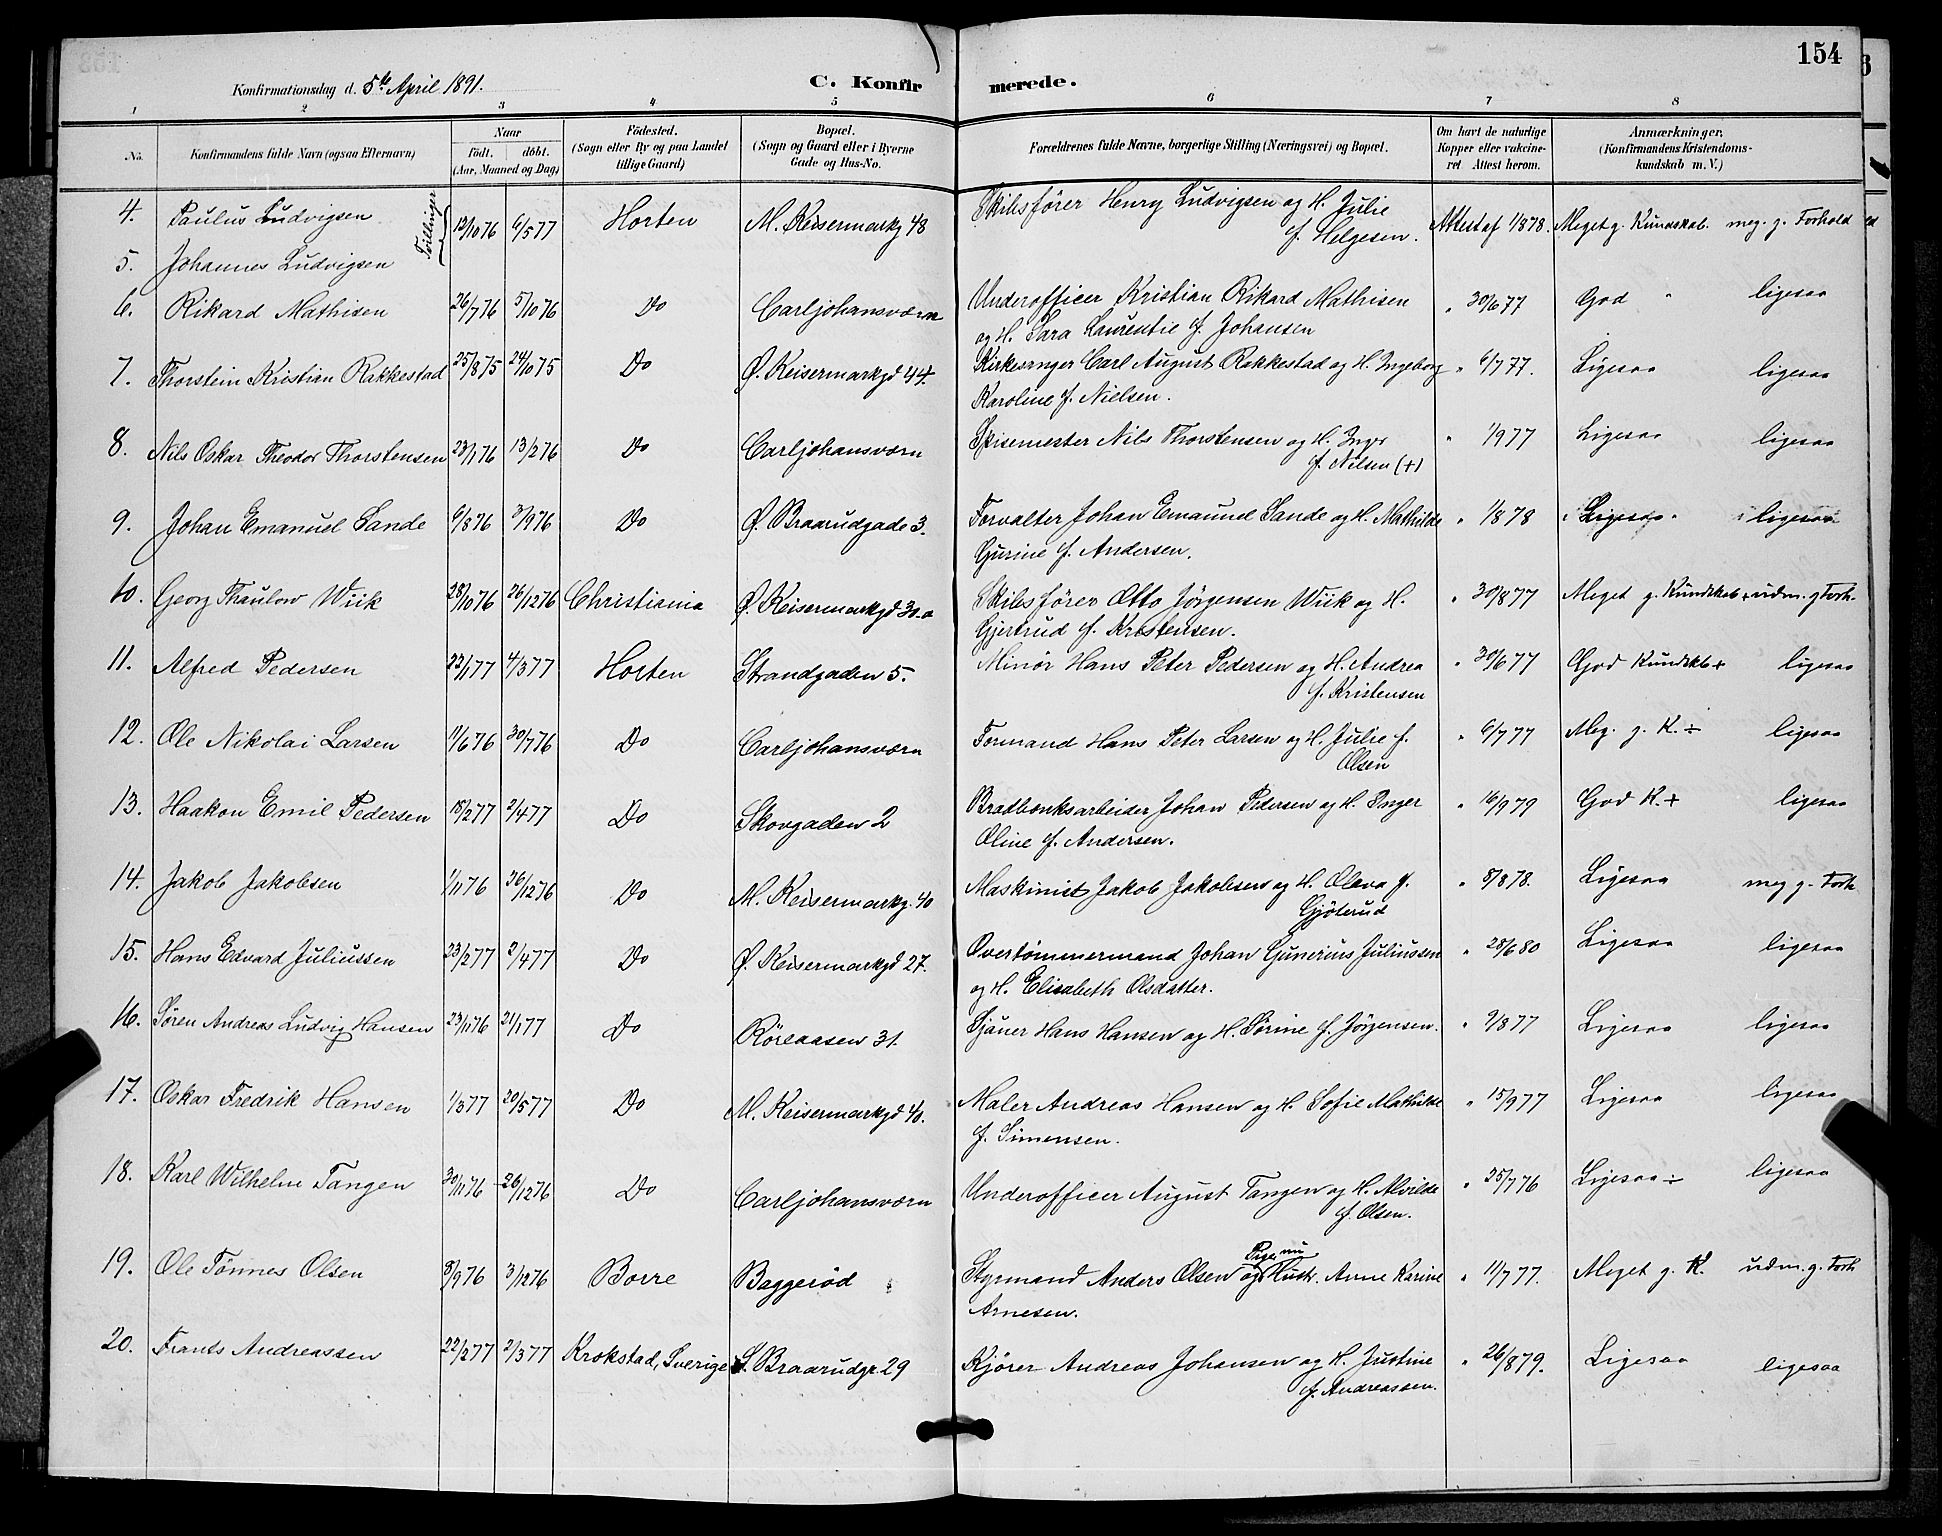 154
Konfirmationsdag d. 5te April 1891.
C. Konfirmerede.
1 2 3 4 5 6 7 8
No. Konfirmandens fulde Navn (ogsaa Efternavn) Naar født. døbt. (Aar, Maaned og Dag) Fødested. (Sogn eller By og paa Landet tillige Gaard) Bopæl. (Sogn og Gaard eller i Byerne Gade og Hus-No. Forældrenes fulde Navne, borgerlige Stilling (Næringsvei) og Bopæl. Om havt de naturlige Kopper eller vakcineret Attest herom. Anmærkninger. (Konfirmandens Kristendomskundskab m. V.)
4. Paulus Ludvigsen Tvillinger 12/10 76 6/5 77 Horten M. Keisermarkg 48 Skibsfører Henry Ludvigsen og H. Julie f. Helgesen. Attest af 1/8 78. Meget g. Kundskab. meg. g. Forhold
5. Johannes Ludvigsen
6. Rikard Mathisen 26/7 76 5/10 76 Do Carljohansværn Underofficer Kristian Rikard Mathisen
og H. Sara Laurentie f. Johansen " 30/6 77 God " ligesaa
7. Thorstein Kristian Rakkestad 25/8 75 24/10 75 Do Ø. Keisermarkgd 44. Kirkesanger Carl August Rakkestad og H. Ingeborg
Karoline f. Nielsen. " 6/7 77. Ligesaa ligesaa
8. Nils Oskar Theodor Thorstensen 23/1 76 13/2 76 Do Carljohansværn Spisemester Nils Thorstensen og H. Inger
f. Nilsen (+) " 1/9 77 Ligesaa ligesaa
9. Johan Emanuel Sande 6/8 76 3/9 76 Do Ø. Braarudgade 3. Forvalter Johan Emaund Sande og H. Mathilde
Gurine f. Andersen. " 1/8 78 Ligesaa ligesaa
10. Georg Thaulow Wiik 28/10 76 26/12 76 Christiania Ø. Keisermarkgd 30.a Skibsfører Otto Jørgensen Wiik og H.
Gjertrud f. Kristensen. " 30/8 77 Meget g. Kundskab + udm. g Forh.
11. Alfred Pedersen 22/1 77 4/3 77 Horten Strandgaden 5. Minør Hans Peter Pedersen og H. Andrea
f. Kristensen " 30/6 77 God Kundskb + ligesaa
12. Ole Nikolai Larsen 11/6 76 30/7 76 Do Carljohansværn Formand Hans Peter Larsen og H. Julie f.
Olsen " 6/7 77 Meg. g. K. ÷ ligesaa
13. Haakon Emil Pedersen 18/2 77 2/4 77 Do Skovgaden 2 Bradbænksarbeider Johan Pedersen og H. Inger
Oline f. Andersen. " 16/9 79 God K. + ligesaa
14. Jakob Jakobsen 1/11 76 26/12 76 Do M. Keisermarkg. 40 Maskinist Jakob Jakobsen og H. Oleva f.
Gjøterud " 8/8 78. Ligesaa meg g. Forh
15. Hans Edvard Juliussen 23/2 77 2/4 77 Do Ø. Keisermarkgd 27. Overtømmermand Johan Gunerius Juliussen
og H. Elisabeth Olsdatter. " 28/6 80 Ligesaa ligesaa
16. Søren Andreas Ludvig Hansen 23/11 76 21/1 77 Do Røreaasen 31. Sjauer Hans Hansen og H. Sørine f. Jørgensen. " 9/8 77 Ligesaa ligesaa
17. Oskar Fredrik Hansen 1/3 77 20/5 77 Do M. Keisermarkgd 40. Maler Andreas Hansen og H. Sofie Mathilde
f. Simensen. " 15/9 77 Ligesaa ligesaa
18. Karl Wilhelm Tangen 30/11 76 26/12 76 Do Carljohansværn Underofficer August Tangen og H. Alvilde
f. Olsen. " 25/7 76 Ligesaa ÷ ligesaa
19. Ole Tønnes Olsen 8/9 76 3/12 76 Borre Baggerød Styrmand Anders Olsen og Pige, nu Hustr. Anne Karine
Arnesen. " 11/7 77. Meget g. K. udm. g. Forh
20. Frants Andreassen 22/2 77 2/3 77 Krokstad, Sverige S. Braarudgt. 29 Kjører Andreas Johansen og H. Justine
f. Andreassen. " 26/8 79. Ligesaa ligesaa